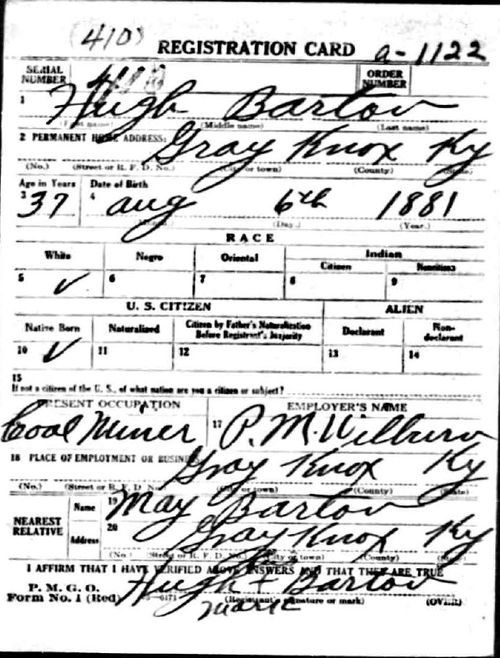 (410)
REGISTRATION CARD a-1122
SERIAL NUMBER 410 ORDER NUMBER
1 Hugh Barton
(First name) (Middle name) (Last name)
2 PERMANENT HOME ADDRESS: Gray Knox Ky
(No.) (Street or R. F. D. No.) (City or town) (County) (State)
Age in Years Date of Birth
3 37 4 Aug 6th 1881
(Month.) (Day.) (Year.)
RACE
White Negro Oriental Indian
Citizen Noncitizen
5 ✓ 6 7 8 9
U. S. CITIZEN ALIEN
Native Born Naturalized Citizen by Father's Naturalization Before Registrant's Majority Declarant Non-declarant
10 ✓ 11 12 13 14
15
If not a citizen of the U. S., of what nation are you a citizen or subject?
PRESENT OCCUPATION EMPLOYER'S NAME
Coal Miner 17 P. M. Wilburn
18 PLACE OF EMPLOYMENT OR BUSINESS: Gray Knox Ky
(No.) (Street or R. F. D. No.) (City or town) (County) (State)
NEAREST RELATIVE Name 19 May Barton
Address 20 Gray Knox Ky
(No.) (Street or R. F. D. No.) (City or town) (County) (State)
I AFFIRM THAT I HAVE VERIFIED ABOVE ANSWERS AND THAT THEY ARE TRUE
P. M. G. O.
Form No. 1 (Red) Hugh + Barton
(Registrant's signature or mark) (OVER)
mark